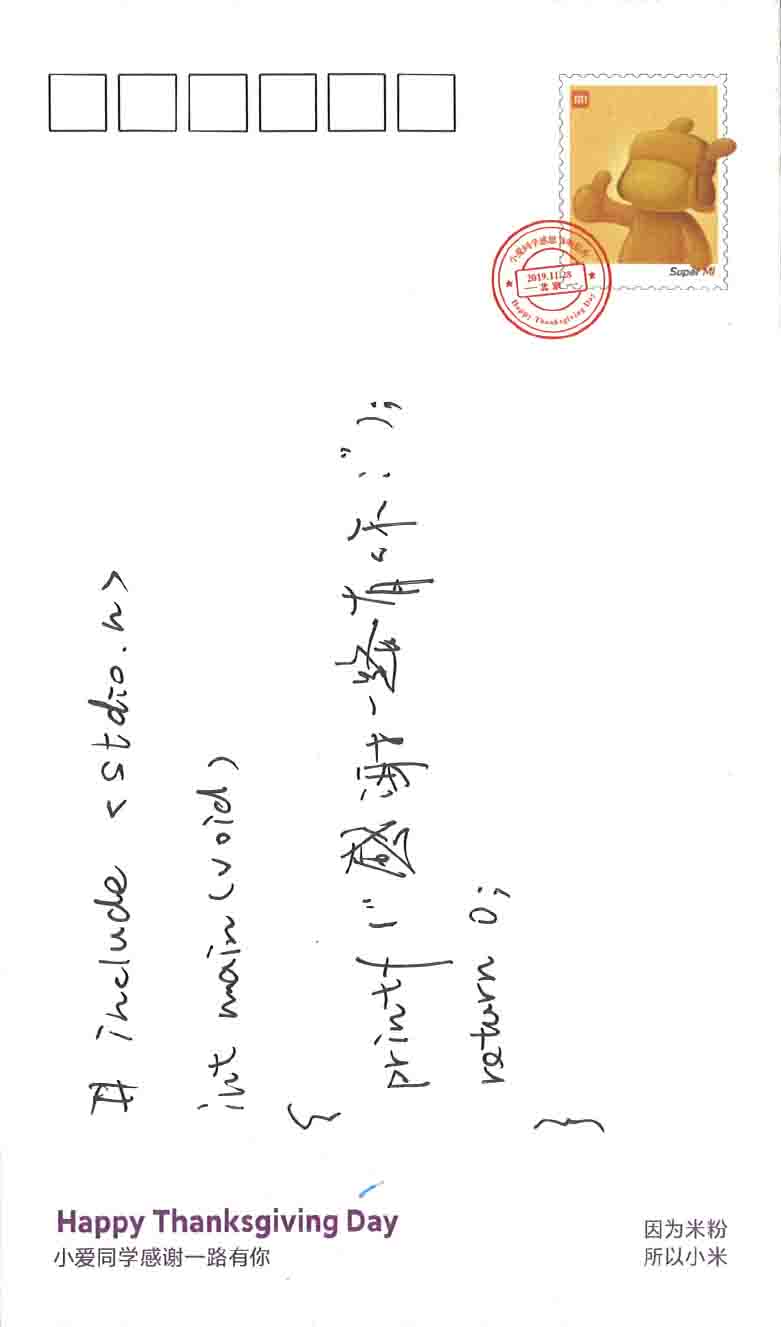 MI
Super Mi
小爱同学感恩
2019.11.28
北京
Happy Thanksgiving Day
# include <stdio.h>
int main(void)
{
printf("感谢一路有你:");
return 0;
}
Happy Thanksgiving Day
小爱同学感谢一路有你
因为米粉
所以小米